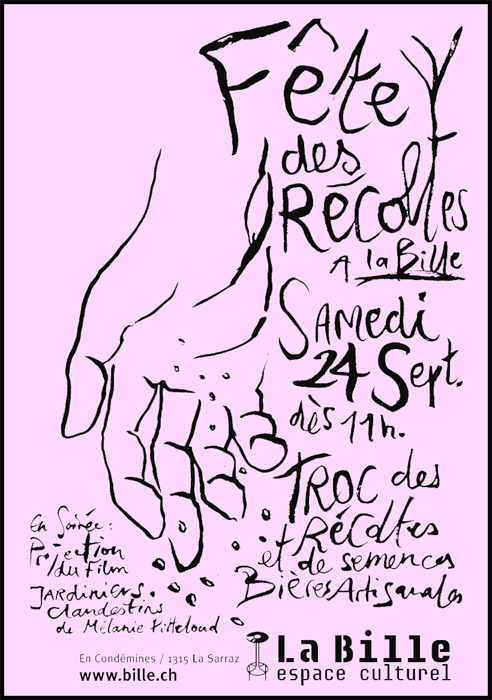 Fête
des
Récoltes
A la Bille
Samedi
24 Sept.
dès 11h.
TROC des
Récoltes
et de semences
Bières Artisanales
En Soirée :
Projection
du Film
JARDINIERS
Clandestins
de Mélanie Pitteloud
En Condémines / 1315 La Sarraz
www.bille.ch
La Bille
espace culturel